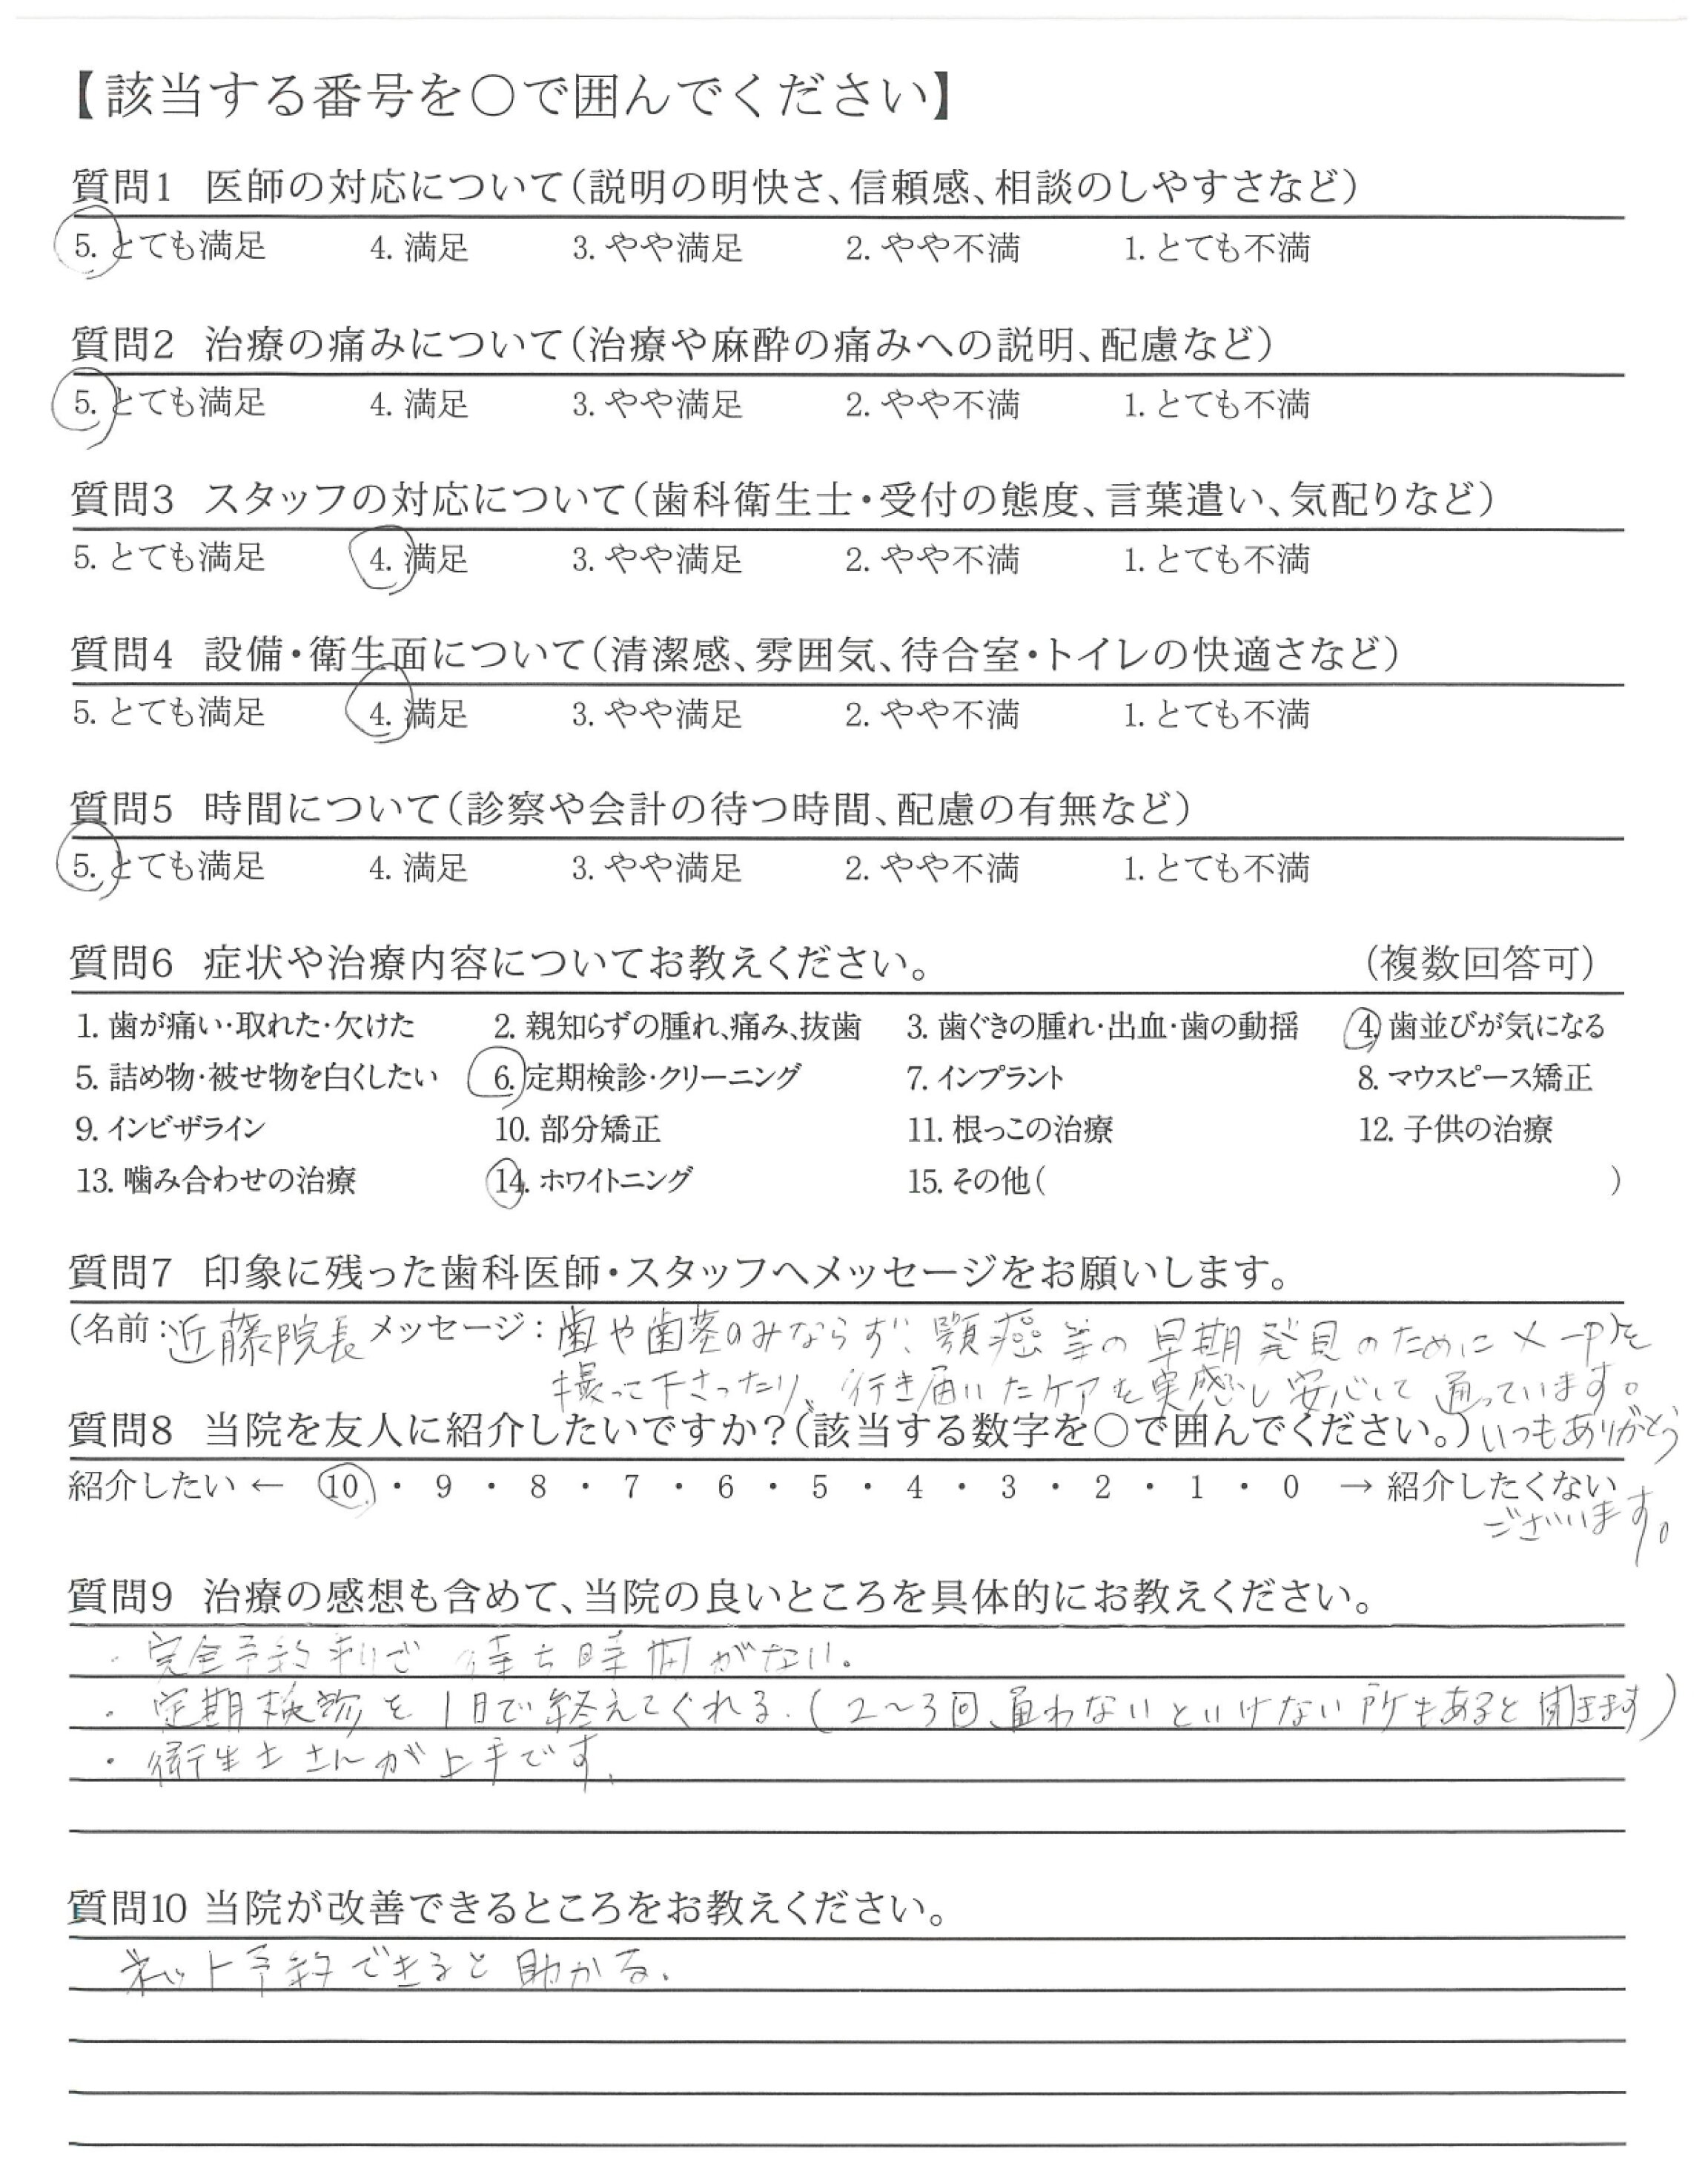 【該当する番号を○で囲んでください】
質問1 医師の対応について（説明の明快さ、信頼感、相談のしやすさなど）
5. とても満足 4. 満足 3. やや満足 2. やや不満 1. とても不満
質問2 治療の痛みについて（治療や麻酔の痛みへの説明、配慮など）
5. とても満足 4. 満足 3. やや満足 2. やや不満 1. とても不満
質問3 スタッフの対応について（歯科衛生士・受付の態度、言葉遣い、気配りなど）
5. とても満足 4. 満足 3. やや満足 2. やや不満 1. とても不満
質問4 設備・衛生面について（清潔感、雰囲気、待合室・トイレの快適さなど）
5. とても満足 4. 満足 3. やや満足 2. やや不満 1. とても不満
質問5 時間について（診察や会計の待つ時間、配慮の有無など）
5. とても満足 4. 満足 3. やや満足 2. やや不満 1. とても不満
質問6 症状や治療内容についてお教えください。 （複数回答可）
1. 歯が痛い・取れた・欠けた 2. 親知らずの腫れ、痛み、抜歯 3. 歯ぐきの腫れ・出血・歯の動揺 4. 歯並びが気になる
5. 詰め物・被せ物を白くしたい 6. 定期検診・クリーニング 7. インプラント 8. マウスピース矯正
9. インビザライン 10. 部分矯正 11. 根っこの治療 12. 子供の治療
13. 噛み合わせの治療 14. ホワイトニング 15. その他（ ）
質問7 印象に残った歯科医師・スタッフへメッセージをお願いします。
（名前：近藤院長 メッセージ：歯や歯茎のみならず、顎癌等の早期発見のために を
撮って下さったり、行き届いたケアを実感し安心して通っています。
質問8 当院を友人に紹介したいですか？（該当する数字を○で囲んでください。）いつもありがとう
紹介したい ← 10 ・ 9 ・ 8 ・ 7 ・ 6 ・ 5 ・ 4 ・ 3 ・ 2 ・ 1 ・ 0 → 紹介したくない
ございます。
質問9 治療の感想も含めて、当院の良いところを具体的にお教えください。
・完全予約制で 待ち時間がない。
・定期検診を1日で終えてくれる。（2〜3回通わないといけない所もあると聞きます）
・衛生士さんが上手です。
質問10 当院が改善できるところをお教えください。
ネット予約できると助かる。